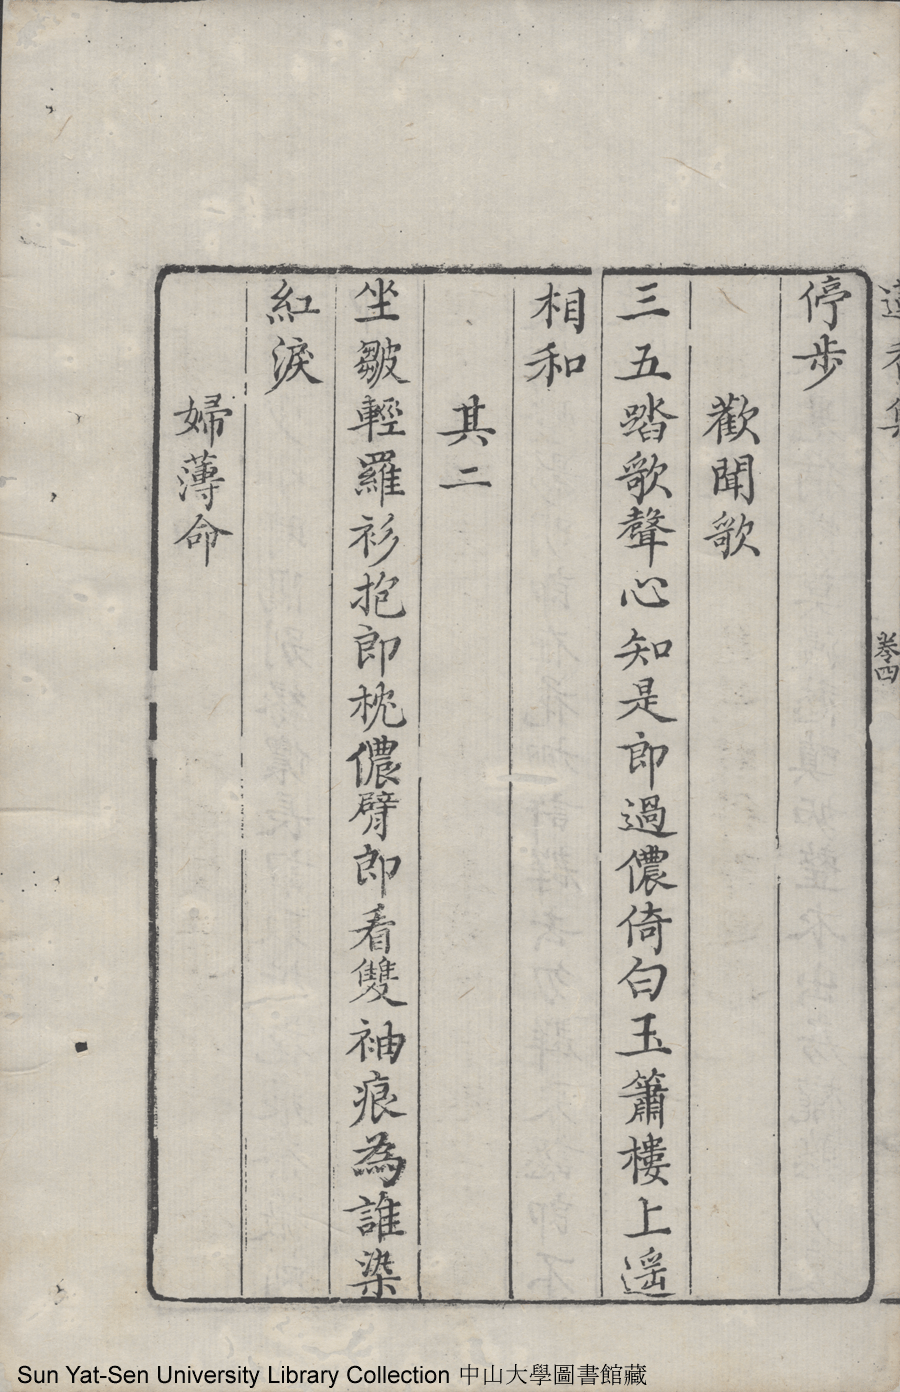 卷四
停步
歡聞歌
三五踏歌聲心知是郎過儂倚白玉簫樓上遥
相和
其二
坐皺輕羅衫抱郎枕儂臂郎看雙袖痕為誰染
紅淚
婦薄命
Sun Yat-Sen University Library Collection 中山大學圖書館藏